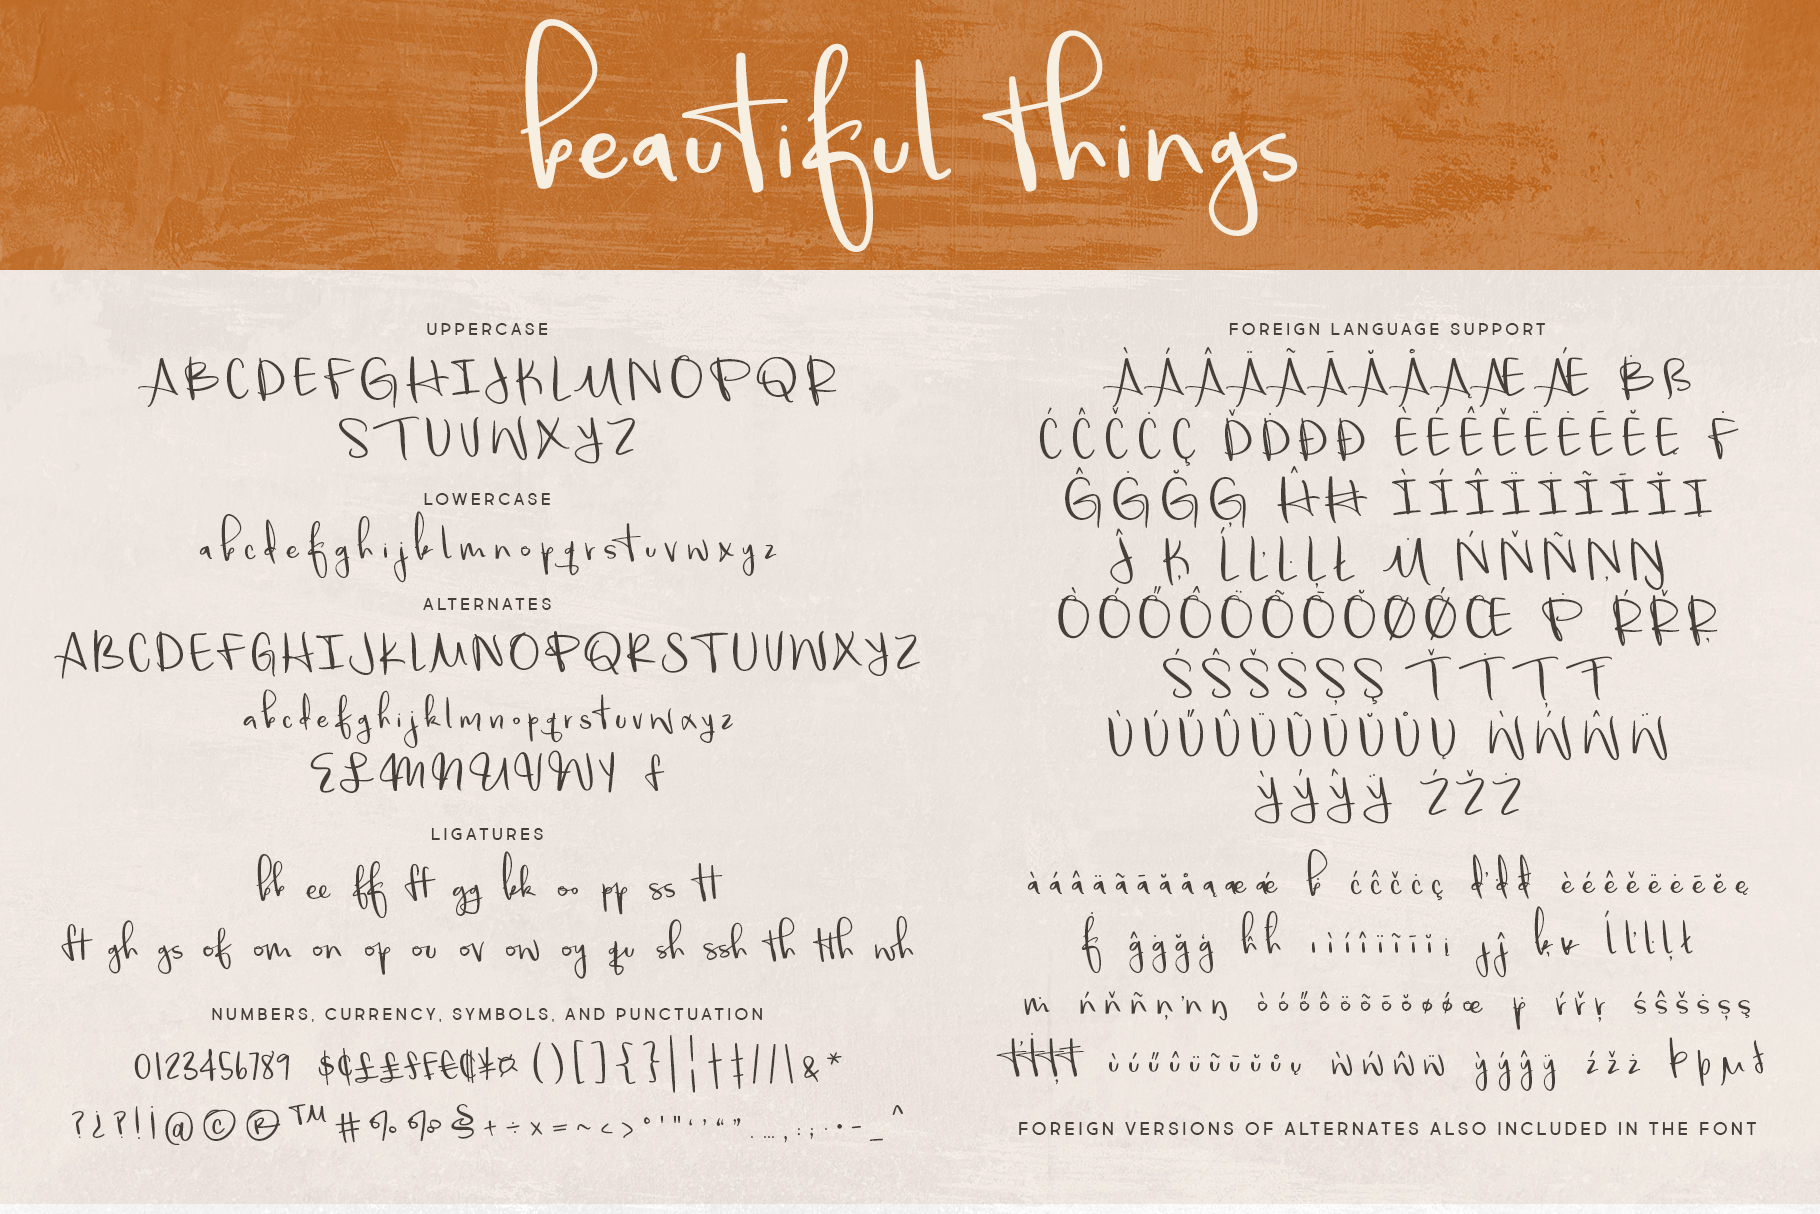 beautiful things
UPPERCASE
ABCDEFGHIJKLMNOPQR
STUUVWXYZ
LOWERCASE
abcdefghijklmnopqrstuvwxyz
ALTERNATES
ABCDEFGHIJKLMNOPQRSTUVWXYZ
abcdefghijklmnopqrstuvwxyz
ELMNUVWY f
LIGATURES
bb ee ff ff gg kk oo pp ss tt
ft gh gs of om on op ou ov ow oy qu sh ssh th tth wh
NUMBERS, CURRENCY, SYMBOLS, AND PUNCTUATION
0123456789 ()[]{}|¦†‡//|\&*
?¿?!¡@©®™#%‰§+÷x=~<>°'"‘’“”.…,:;·•-_^
FOREIGN LANGUAGE SUPPORT
ÀÁÂÄÃĀĂÅĄÆǼ Ḃß
ĆĈČĊÇ ĎḊĐĐ ÈÉÊĚËĖĒĔĘ Ḟ
ĜĠĞĢ ĤĦ ÌÍÎÏİĨĪĬĮ
Ĵ Ķ ĹĽĿĻŁ Ṁ ŃŇÑŅŊ
ÒÓŐÔÖÕŌŎØǾŒ Ṗ ŔŘŖ
ŚŜŠṠȘŞ ŤṪȚŦ
ÙÚŰÛÜŨŪŬŮŲ ẀẂŴẄ
ỲÝŶŸ ŹŽŻ
àáâäãāăåąæǽ ḃ ćĉčċç ďḋđ èéêěëėēĕę
ḟ ĝġğģ ĥħ ıìíîïĩīĭį ȷĵ ķĸ ĺľŀļł
ṁ ńňñņŉŋ òóőôöõōŏøǿœ ṗ ŕřŗ śŝšṡșş
ťṫțŧ ùúűûüũūŭůų ẁẃŵẅ ỳýŷÿ źžż Þþµð
FOREIGN VERSIONS OF ALTERNATES ALSO INCLUDED IN THE FONT